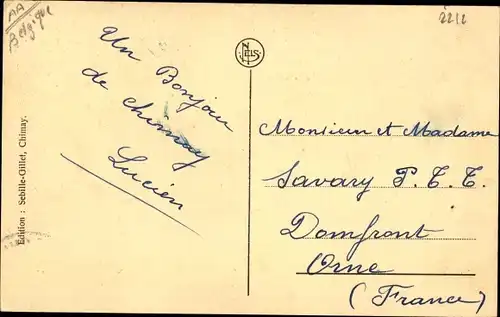 AA
Belgique
2212
NELS
Un Bonjour
de Chimay
Lucien
Edition : Sebille-Gillet, Chimay.
Monsieur et Madame
Savary P. T. T.
Domfront
Orne
(France)